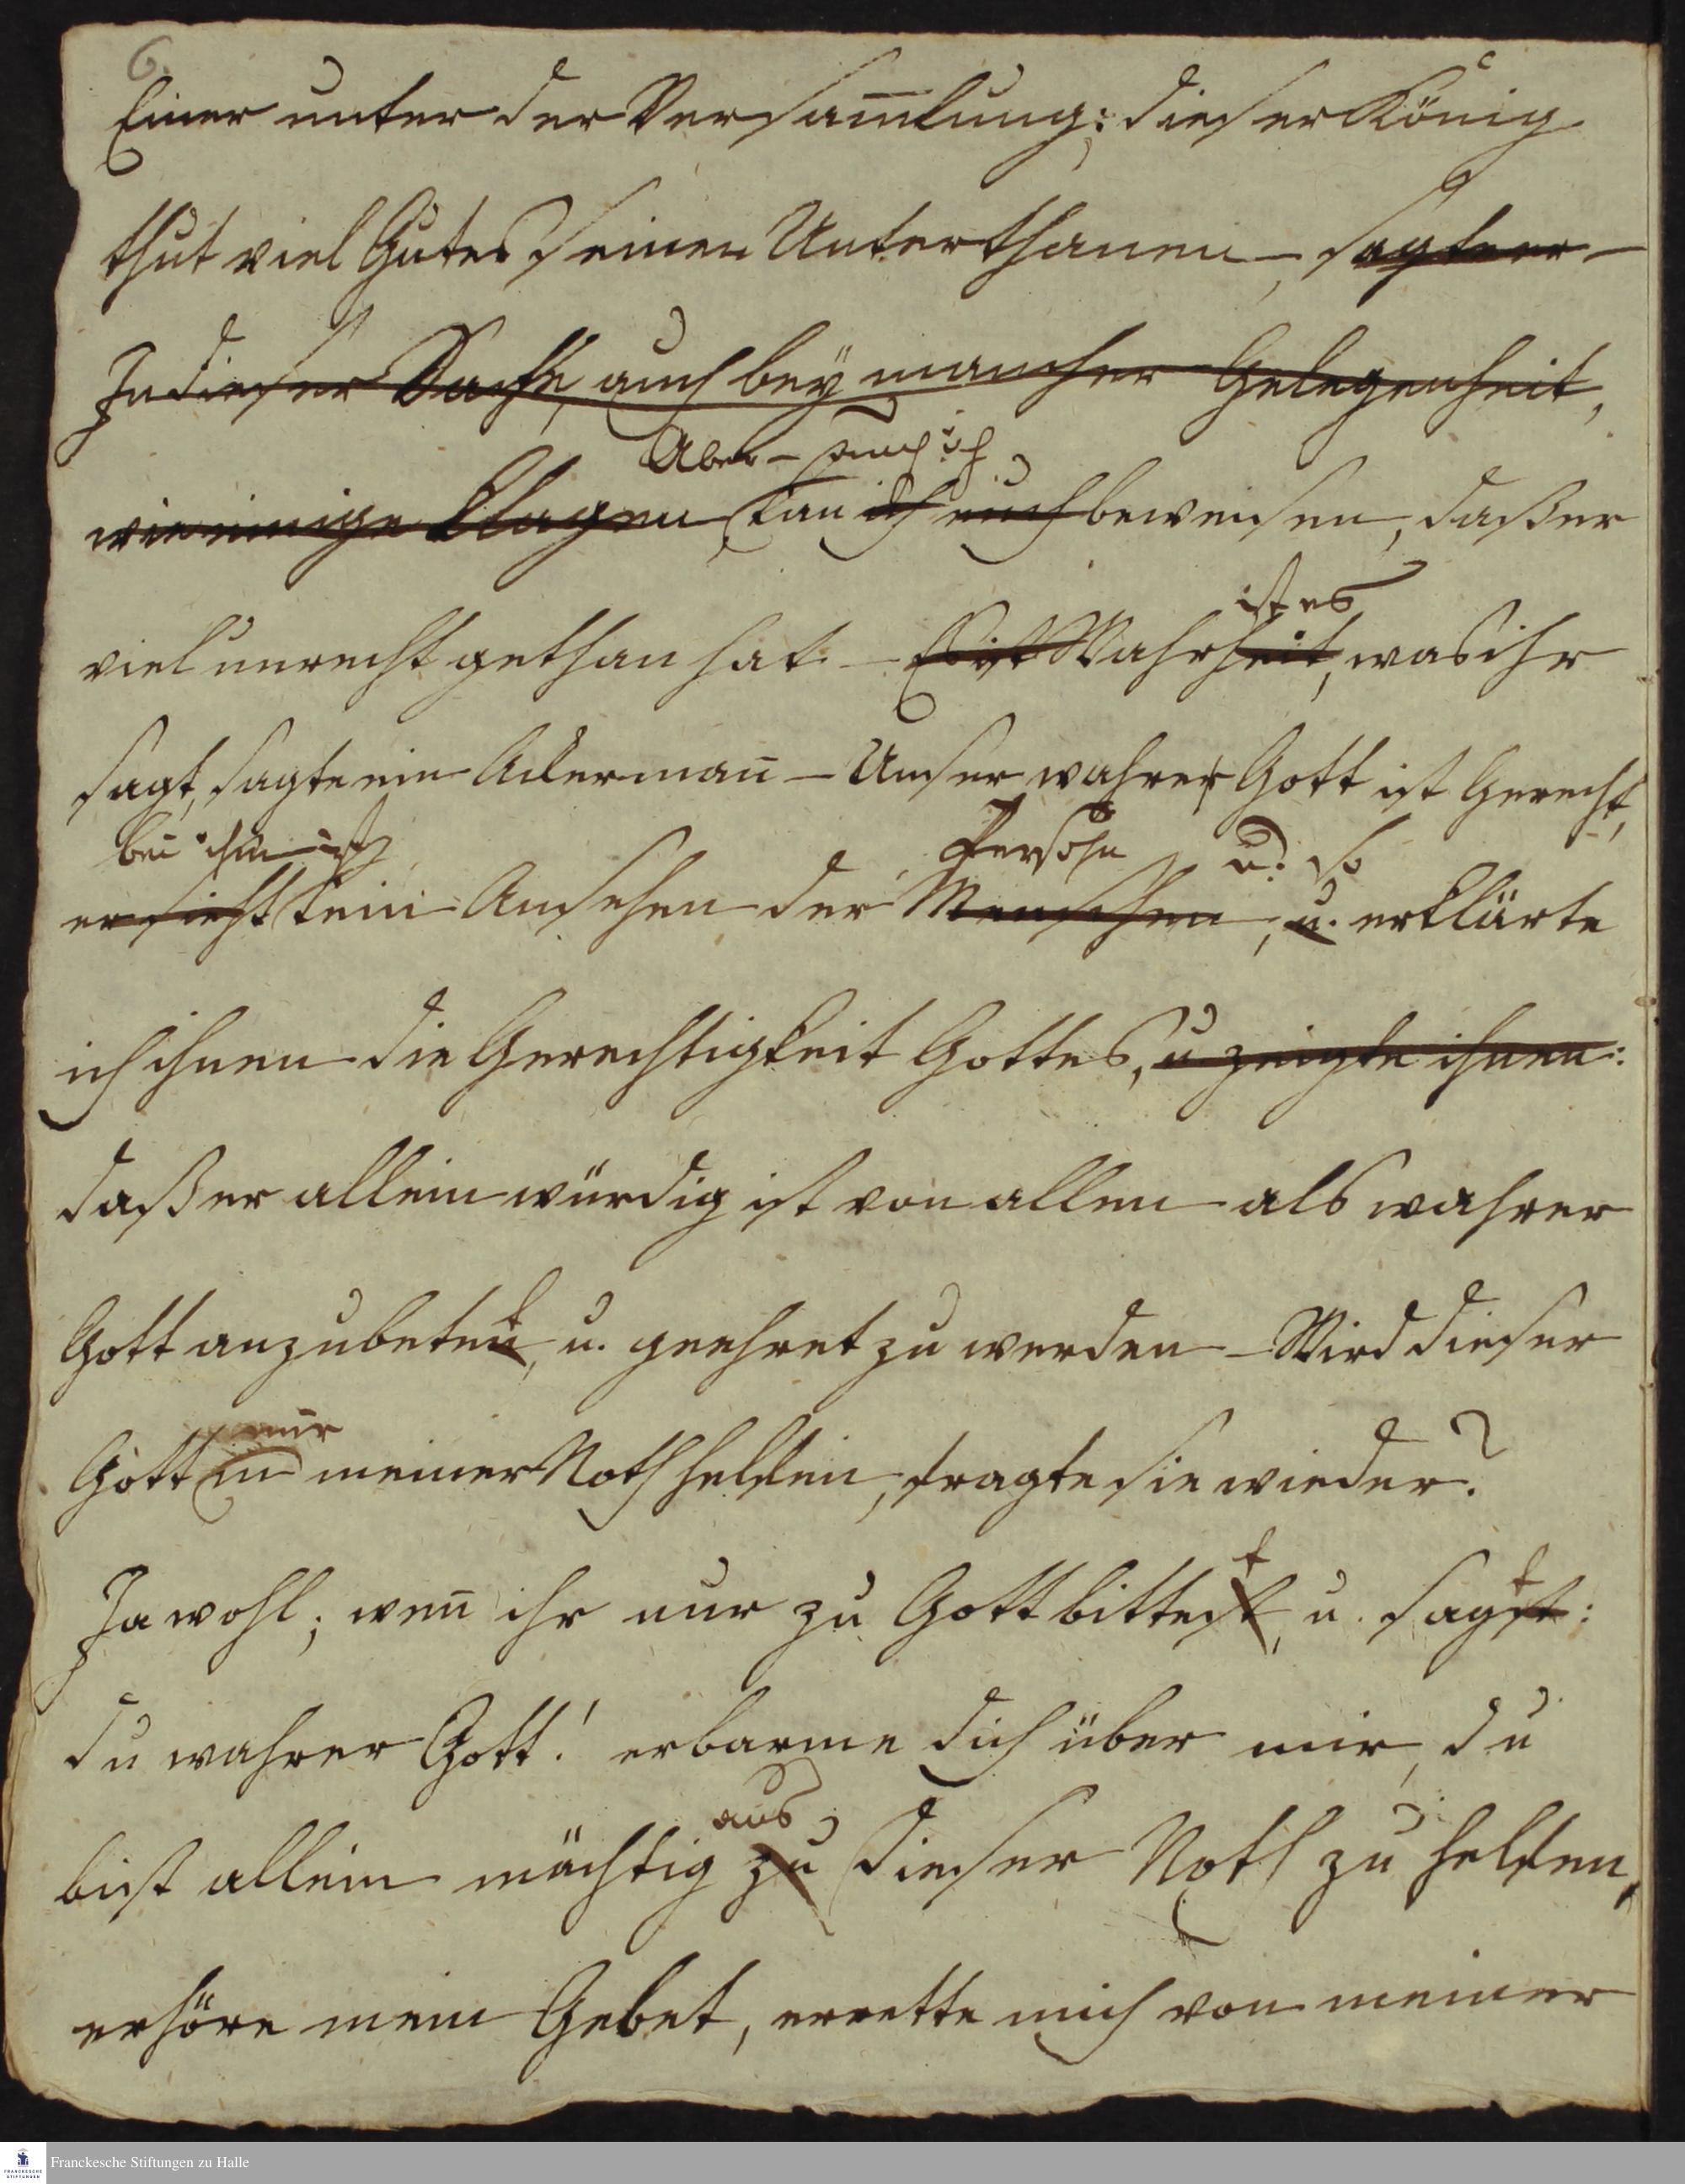 6.
Einer unter der Versam̄lung: dieser König
thut viel Gutes seinen Unterthanen – sagte er –
In dieser Sache, auch bey mancher Gelegenheit,
Aber – auch ich
wie einige klagen, kan ich euch beweisen, daß er
ist es
viel unrecht gethan hat – Es ist Wahrheit, was ihr
sagt, sagte ein Ackerman̄ – Unser wahrer Gott ist Gerecht,
bei ihm ist Persohn u. so
er sieht kein Ansehen der Menschen, u. erklärte
ich ihnen die Gerechtigkeit Gottes, u zeigte ihnen:
daß er allein würdig ist von allen als wahrer
Gott anzubeten, u. geehret zu werden – Wird dieser
mir
Gott in meiner Noth helfen, fragte sie wieder?
Ja wohl; wen̄ ihr nur zu Gott bittest, u. sagst:
t t
du wahrer Gott! erbarme dich über mir, du
aus
bist allein mächtig zu dieser Noth zu helfen,
erhöre mein Gebet, errette mich von meiner
Franckesche Stiftungen zu Halle